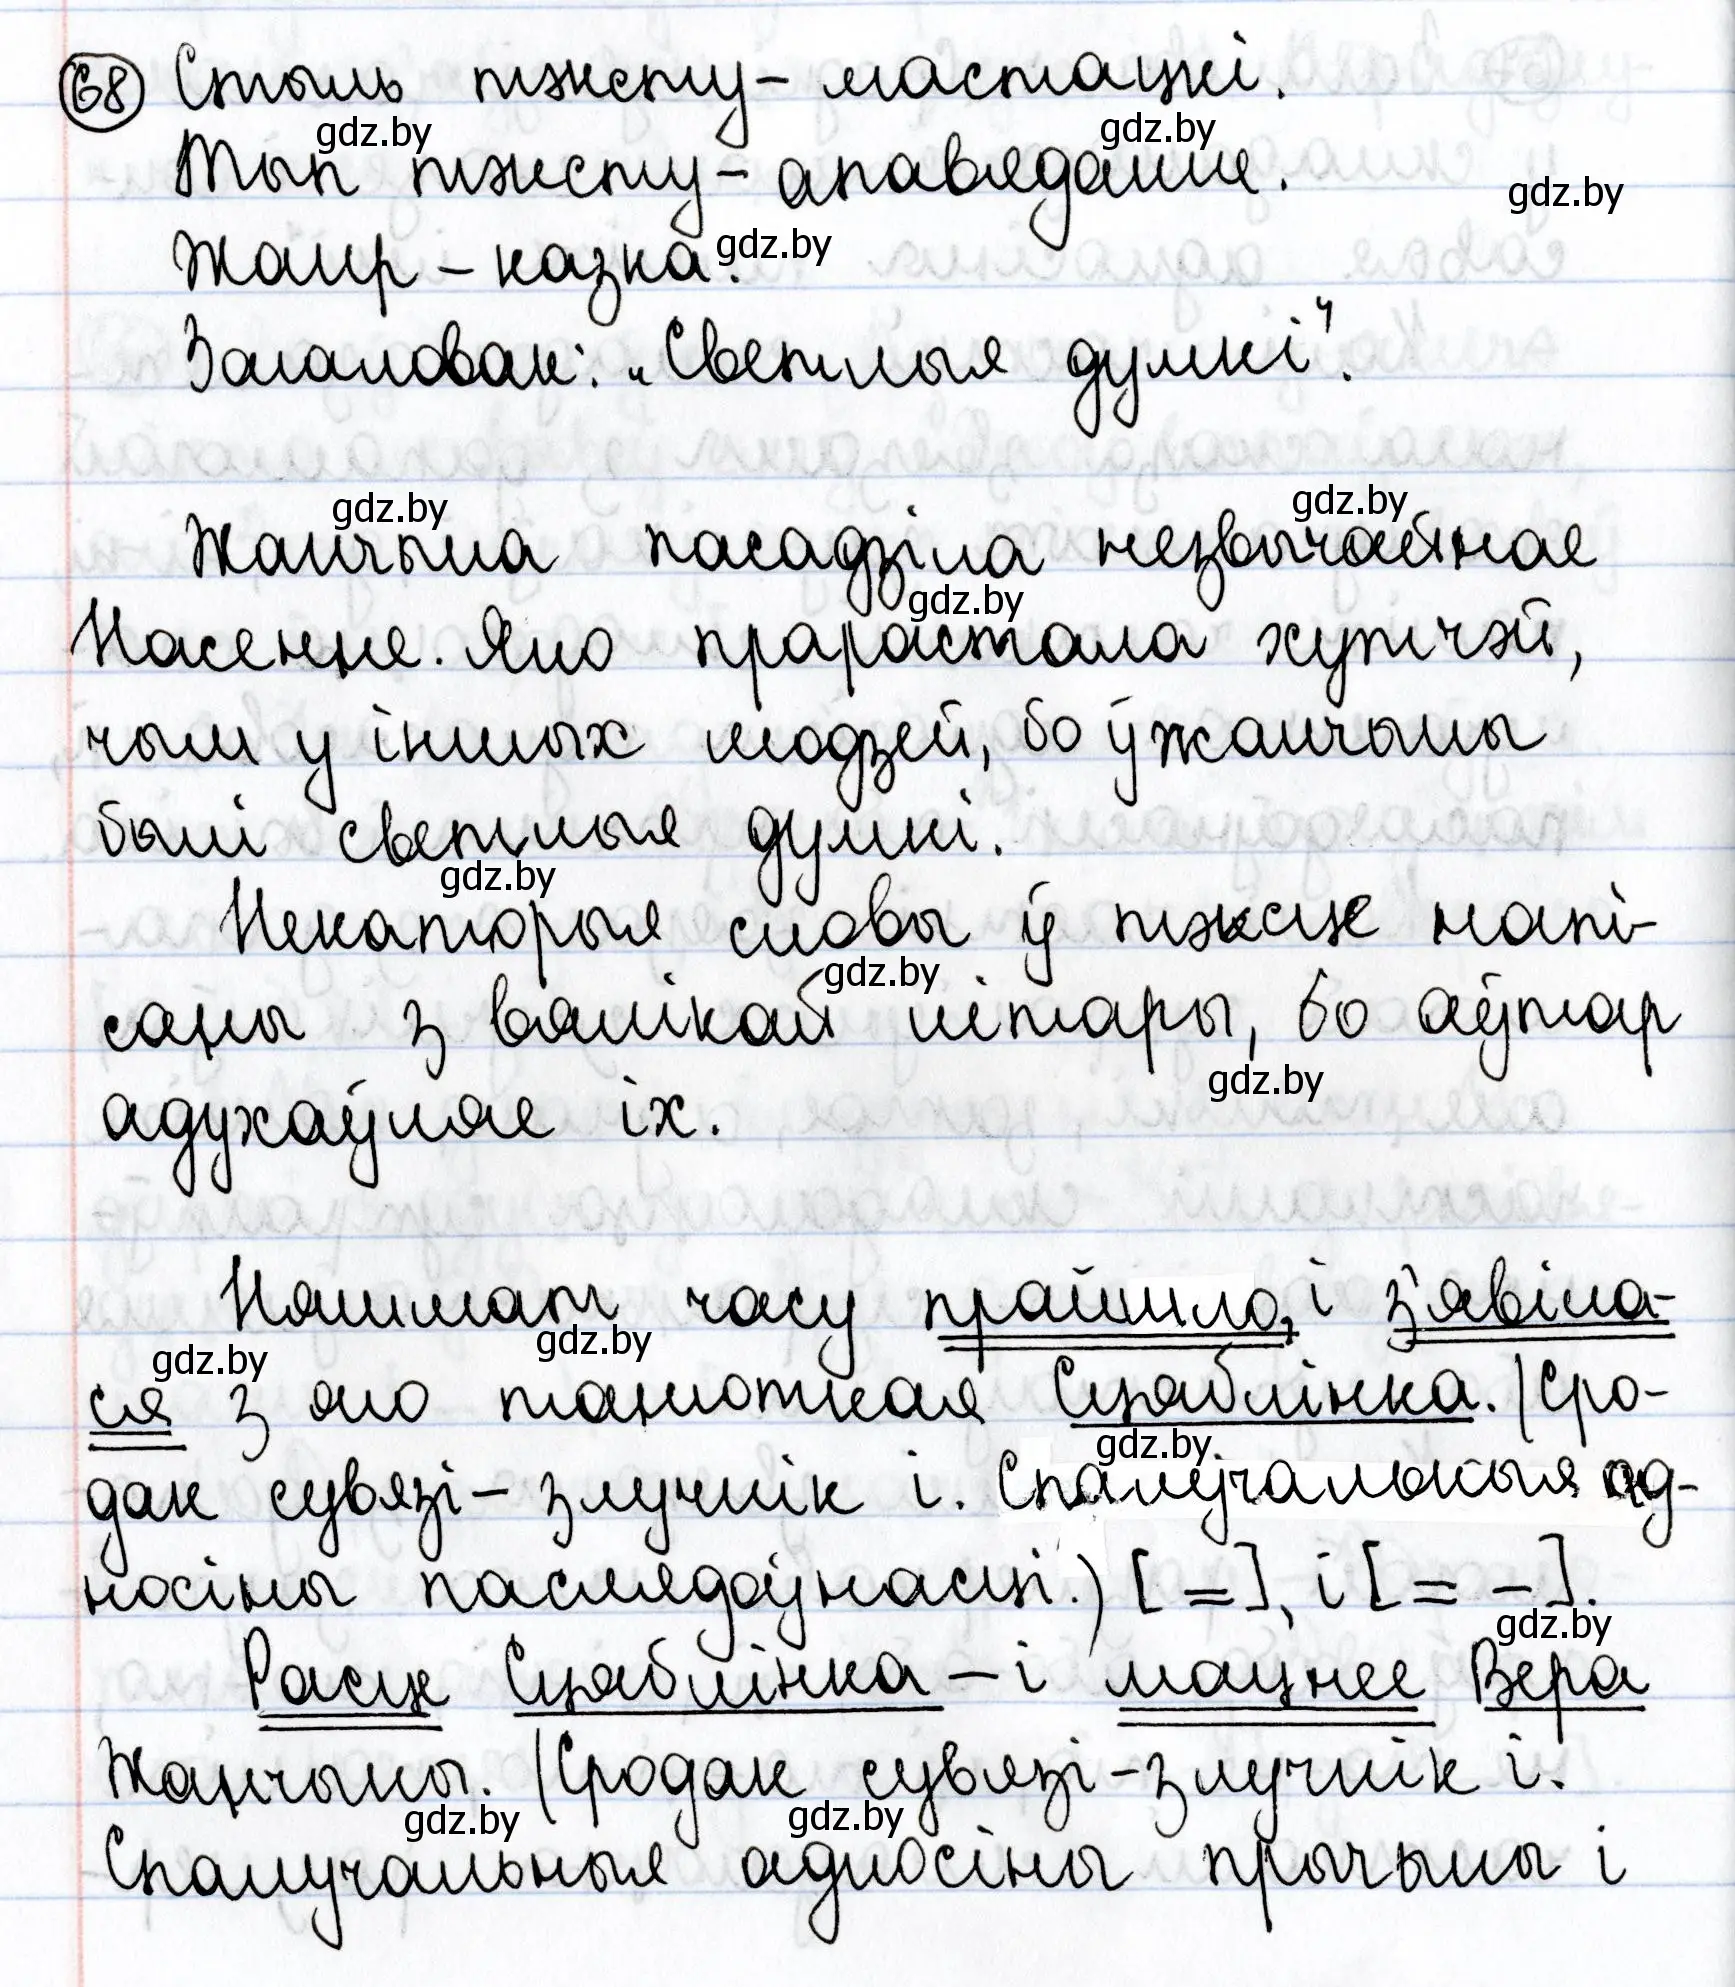 68 Стыль тэксту – мастацкі.
gdz.by gdz.by
Тып тэксту – апавяданне.
gdz.by
Жанр – казка.
gdz.by
Загаловак: „Светлыя думкі".
gdz.by gdz.by
Жанчына пасадзіла незвычайнае
gdz.by
Насенне. Яно прарастала хутчэй,
чым у іншых людзей, бо ў жанчыны
былі светлыя думкі.
gdz.by
Некаторыя словы ў тэксце напі-
gdz.by
саны з вялікай літары, бо аўтар
gdz.by
адухаўляе іх.
Няшмат часу прайшло, і з'явіла-
gdz.by gdz.by
ся з яго танюткая Сцяблінка. (Сро-
gdz.by
дак сувязі – злучнік і. Спалучальныя ад-
носіны паслядоўнасці.) [=], і [= –].
gdz.by
Расце Сцяблінка – і мацнее Вера
Жанчыны. (Сродак сувязі – злучнік і.
gdz.by gdz.by
Спалучальныя адносіны прычыны і